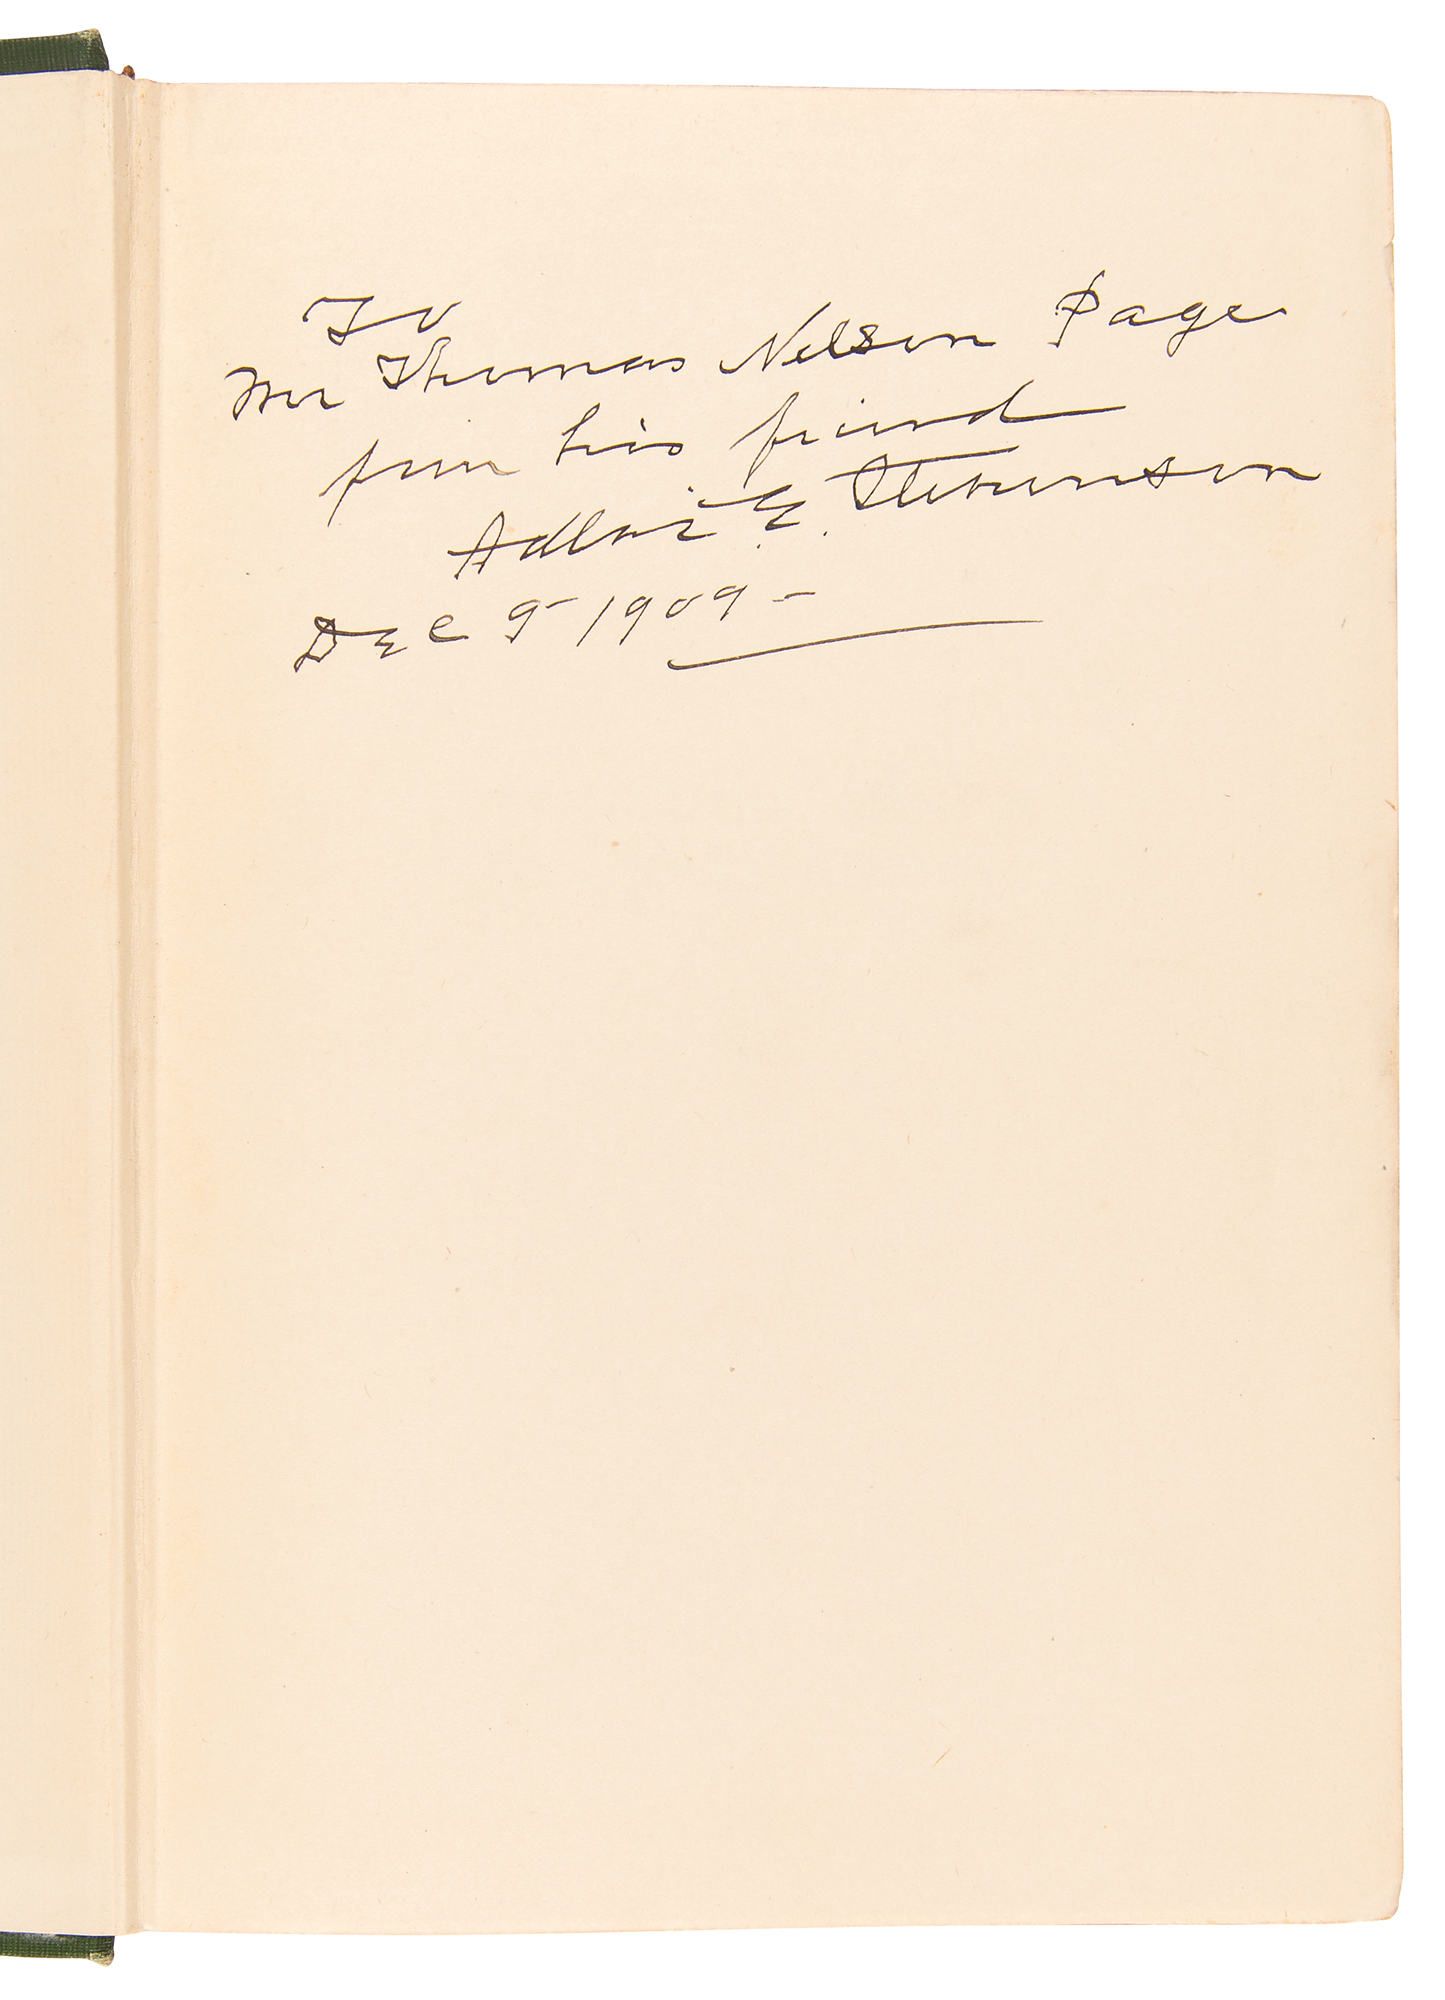 To
Mr Thomas Nelson Page
from his friend
Adlai E. Stevenson
Dec 9 - 1909 -